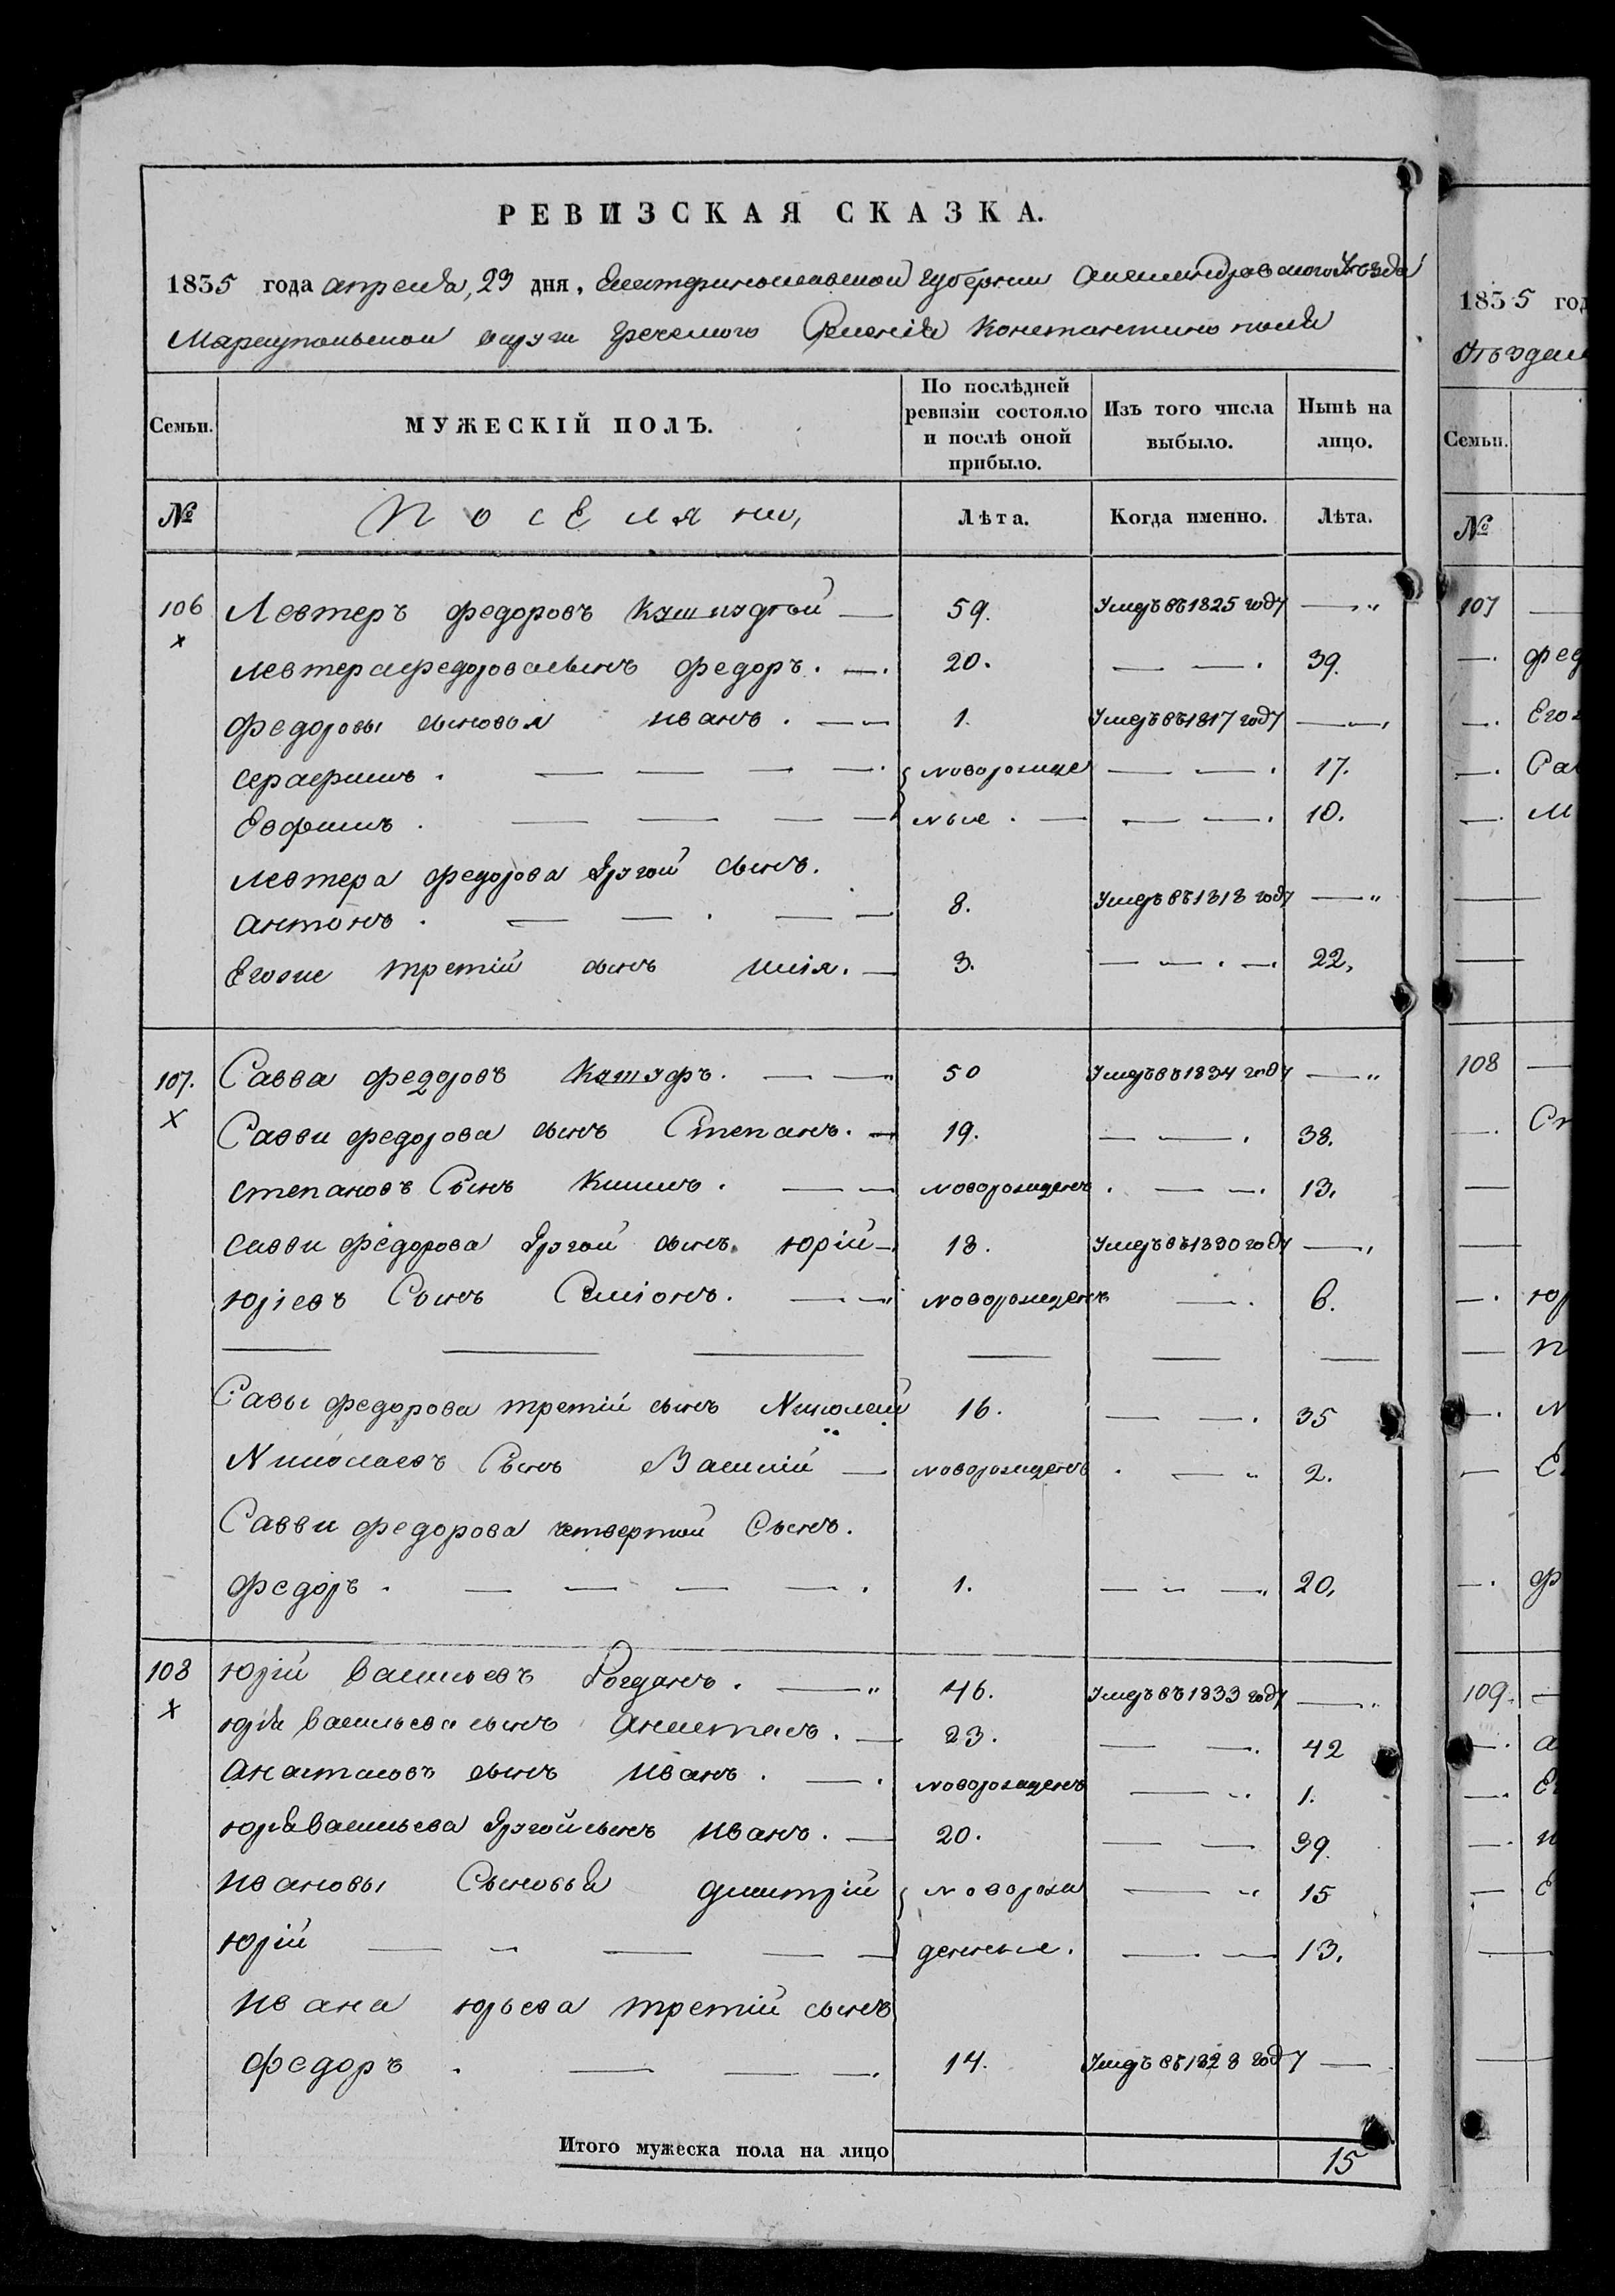 РЕВИЗСКАЯ СКАЗКА.
1835 года апреля, 29 дня, Екатеринославской губернии Александровского Уезда
Мариупольской округи Греческого Селенія Константинополя
Семьи. МУЖЕСКІЙ ПОЛЪ. По послѣдней ревизіи состояло и послѣ оной прибыло. Изъ того числа выбыло. Нынѣ на лицо.
№ Поселяни, Лѣта. Когда именно. Лѣта.
106 Левтеръ федоровъ 59. Умеръ въ 1825 году — „
х левтера федорова сынъ федоръ. — 20. — — . 39.
федоровы сыновья иванъ . — — 1. Умеръ въ 1817 году — —,
серафимъ . — — — — . новорожде — — . 17.
Евфимъ . — — — — ные . — — — . 10.
левтера федорова другой сынъ.
антонъ . — — . — — 8. Умеръ въ 1818 году — „
Егоже третій сынъ илія. — 3. — — . — . 22,
107. Савва федоровъ Кашуфъ. — — 50 Умеръ въ 1834 году — „
х Савви федорова сынъ Степанъ. — 19. — — . 38.
степановъ Сынъ . — — новорожденъ . — — . 13.
савви федорова другой сынъ. юрій — 18. Умеръ въ 1830 году — ,
юріевъ Сынъ Симіонъ. — — новорожденъ — . 6.
— — — — — —
Савы федорова третій сынъ Николай 16. — — . 35
Николаевъ Сынъ Василій — новорожденъ . — „ 2.
Савви федорова четвертой Сынъ.
федоръ . — — — — . 1. — — — „ 20,
108 юрій васильевъ Богданъ . — „ 46. Умеръ въ 1833 году — „
х юрія васильева сынъ Анастасъ. — 23. — — . 42
Анастасовъ сынъ иванъ . — . новорожденъ — . . 1.
юрія васильева другой сынъ иванъ. — 20. — — 39.
ивановы Сыновья дмитрій новорож — „ 15
юрій — — — — — денные. — — 13.
ивана юрьева третій сынъ
федоръ . — — — . 14. Умеръ въ 1828 году —
Итого мужеска пола на лицо 15
1835 год
Уѣздам
Семьи.
№
107 —
— . фед
— . Его
— . Сав
— . М
108 —
— . Ст
— . юр
— п
— . н
— . ф
109. —
— . а